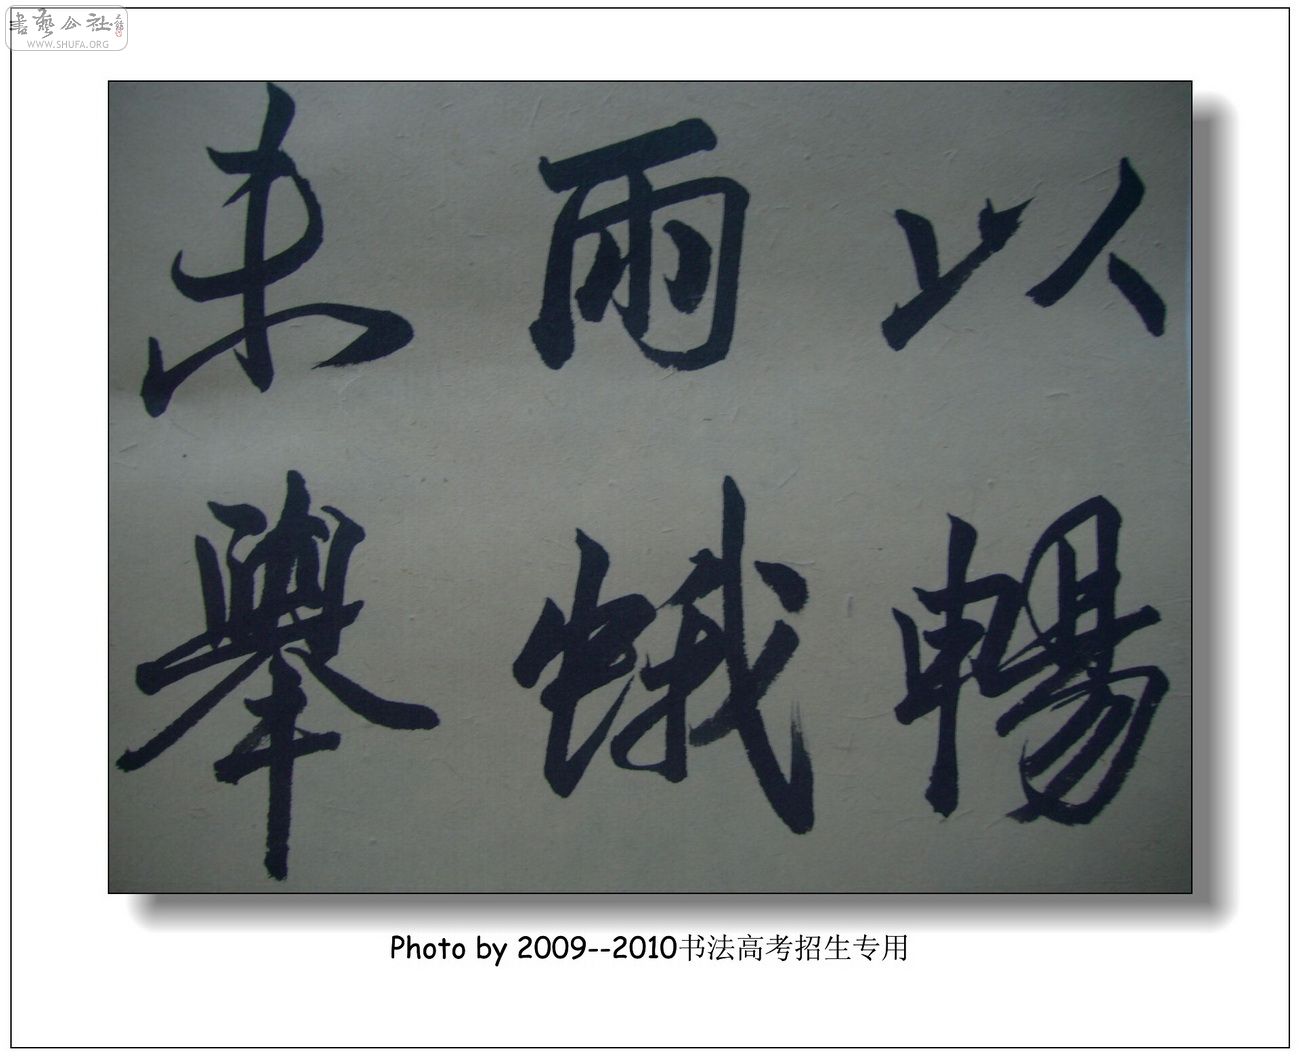 書藝公社
WWW.SHUFA.ORG
以暢
雨蛾
未舉
Photo by 2009--2010书法高考招生专用